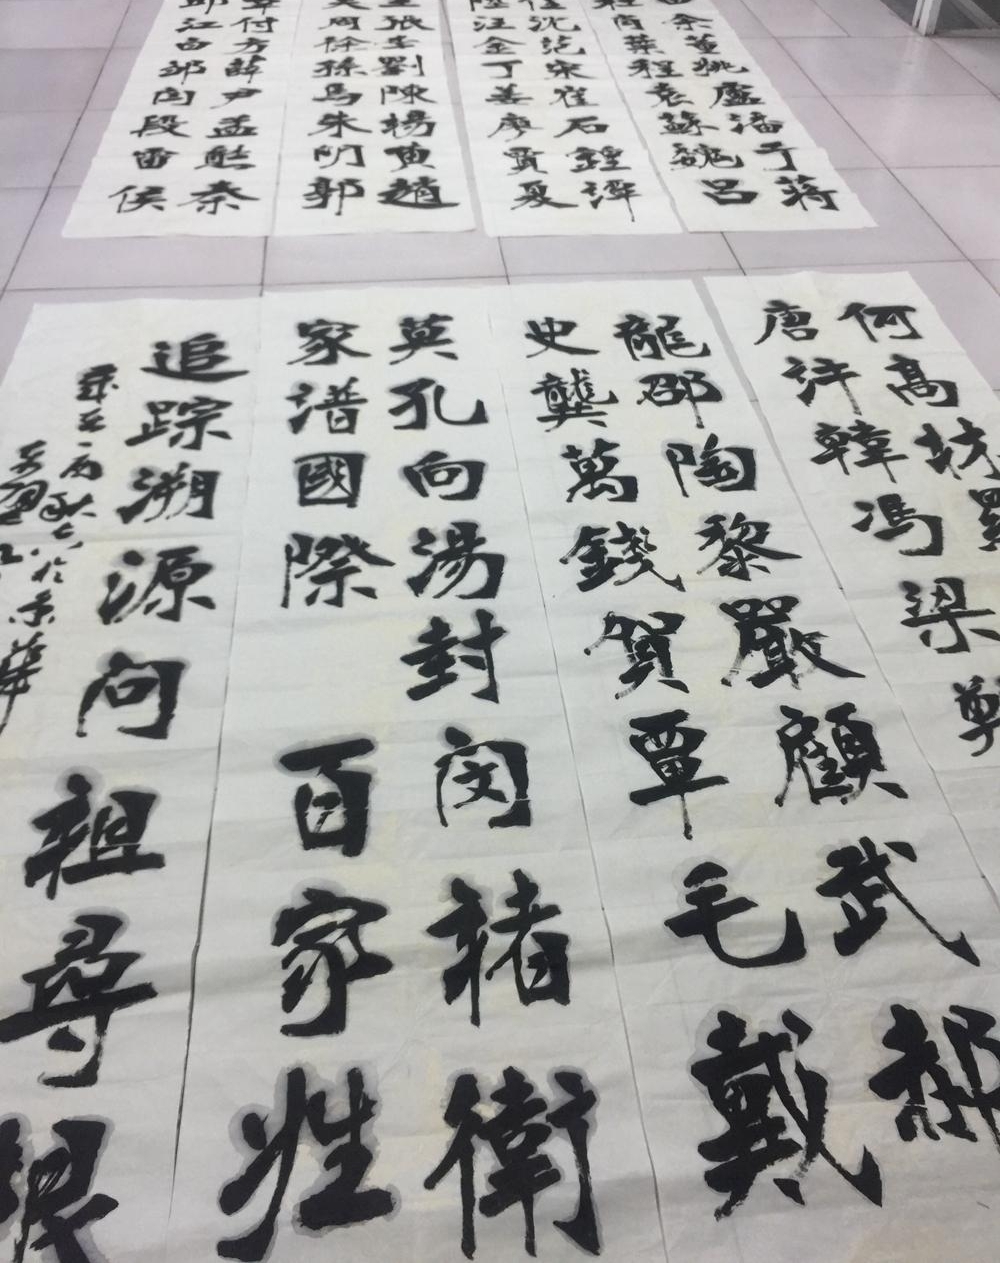 余董姚盧潘于蔣
肖葉程袁蘇魏呂
任沈范宋崔石鍾譚
陸汪金丁姜廖賈夏
張李劉陳楊黄趙
周徐孫馬朱胡郭
付方薛尹孟熊秦
邱江白鄒閆段雷侯
何高林羅
唐許韓馮梁鄭
龍邵陶黎嚴顧武郝
史龔萬錢賀覃毛戴
莫孔向湯封閔褚衛
家谱國際 百家姓
追踪溯源问祖尋根
於京華